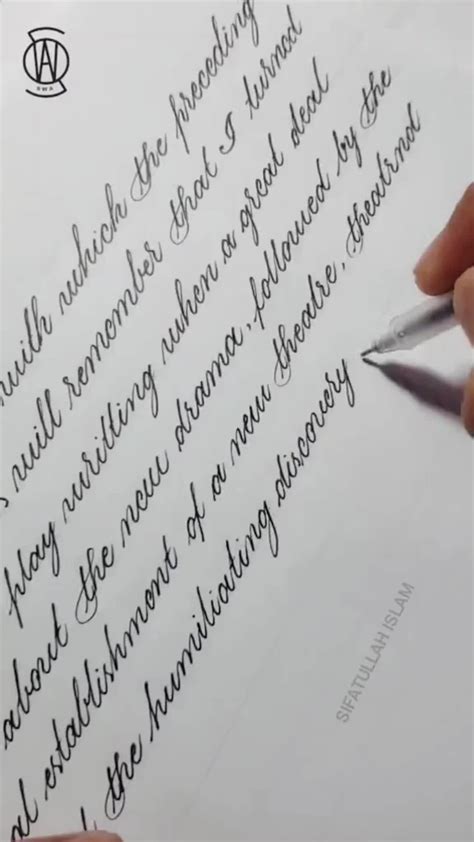 SWA
with which the preceding
will remember that I turned
play writting when a great deal
about the new drama, followed by the
al establishment of a new theatre, theatrnd
the humiliating discovery
SIFATULLAH ISLAM